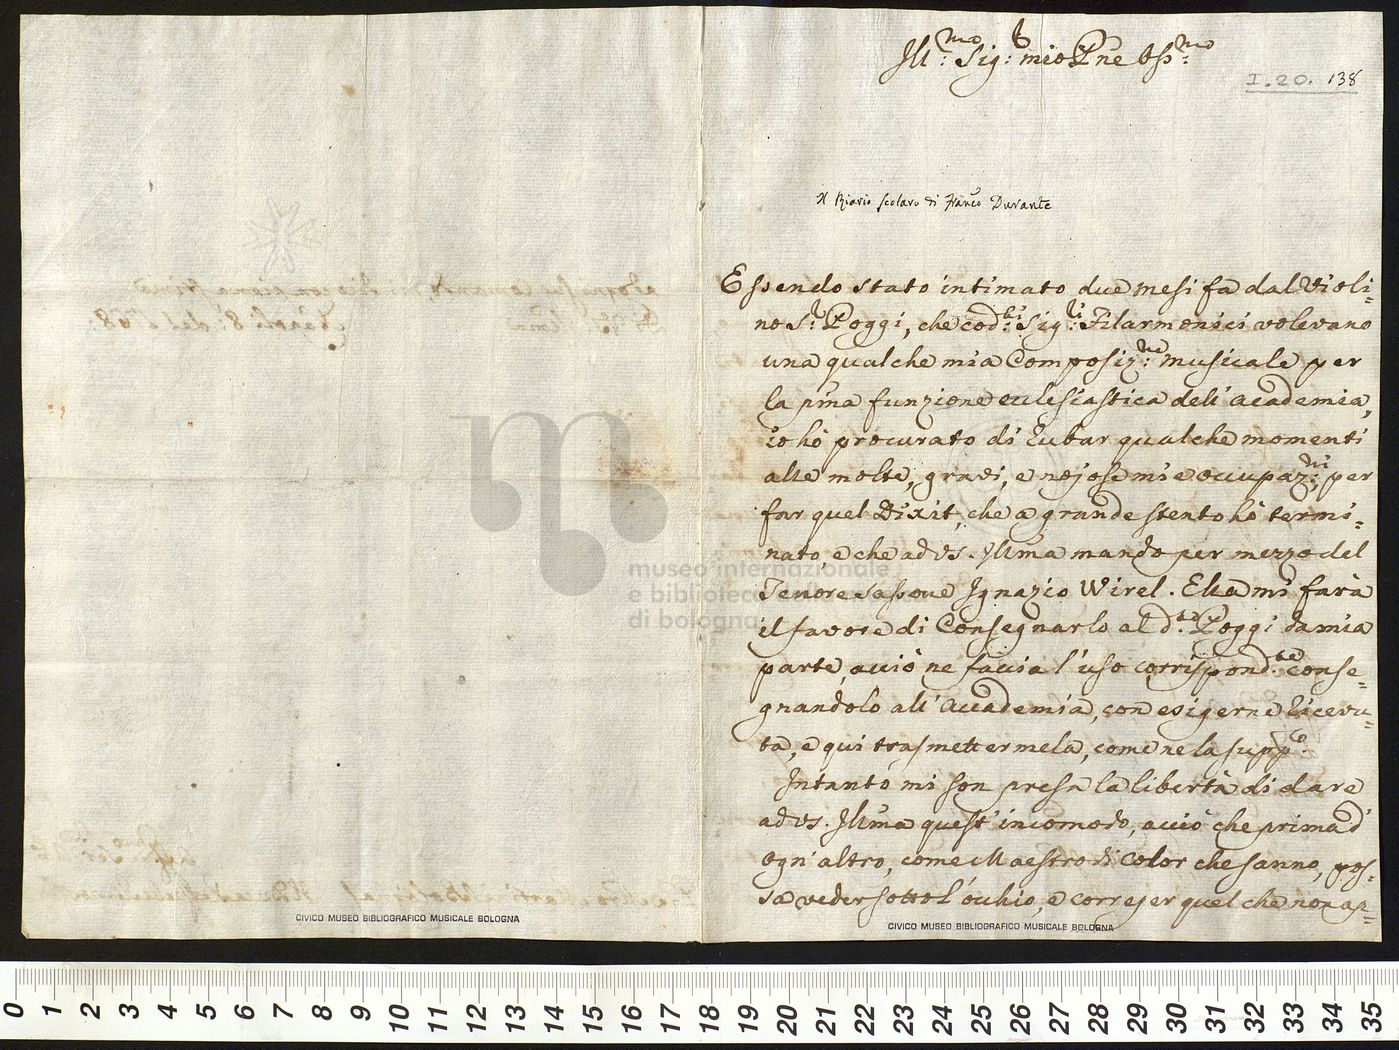 Ill.mo Sig.r mio Pne Oss.mo
I.20. 138
Il Riario scolaro di Franco Durante
Essendo stato intimato due mesi fa dal Violi-
no S.r Poggi, che cod.ti Sig.ri Filarmonici volevano
una qualche mia Composiz.ne musicale per
la pma funzione ecclesiastica dell'Academia,
io hò procurato di rubar qualche momenti
alle molte, gravi, e nojose mie occupaz.ni per
far quel Dixit, che a grande stento hò termi-
nato, e che ad Vs. Illma mando per mezzo del
Tenore Sassone Ignazio Wirel. Ella mi farà
il favore di consegnarlo al d.to Poggi da mia
parte, acciò ne faccia l'uso corrispond.te conse-
gnandolo all'Accademia, con esigerne ricevu-
ta, e qui trasmettermela, come ne la supp.co
Intanto mi son presa la libertà di dare
ad Vs. Illma quest'incomodo, acciò che prima d'
ogn'altro, come Maestro di color che sanno, pos-
sa veder sotto l'occhio, e correjer quel che non ap-
museo internazionale
e biblioteca della musica
di bologna
CIVICO MUSEO BIBLIOGRAFICO MUSICALE BOLOGNA
CIVICO MUSEO BIBLIOGRAFICO MUSICALE BOLOGNA
0 1 2 3 4 5 6 7 8 9 10 11 12 13 14 15 16 17 18 19 20 21 22 23 24 25 26 27 28 29 30 31 32 33 34 35